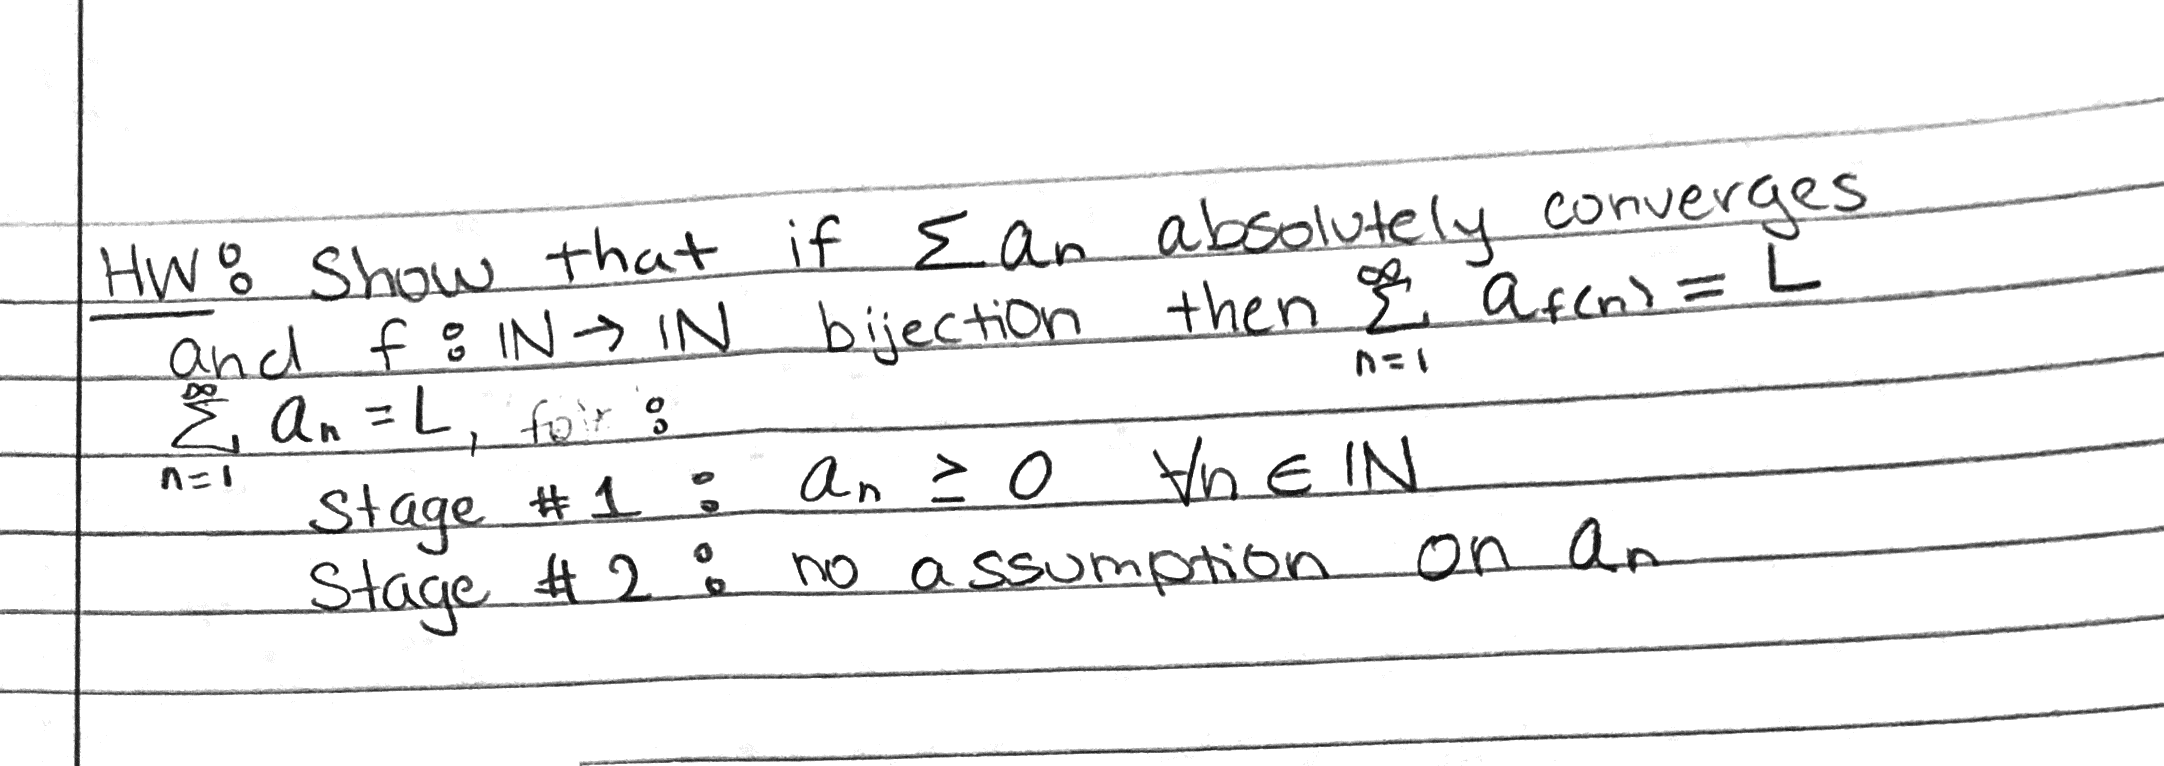 HW: Show that if Σ an absolutely converges
and f: ℕ → ℕ bijection then ∞Σn=1 af(n) = L
∞Σn=1 an = L, for:
Stage #1: an ≥ 0 ∀n ∈ ℕ
Stage #2: no assumption on an